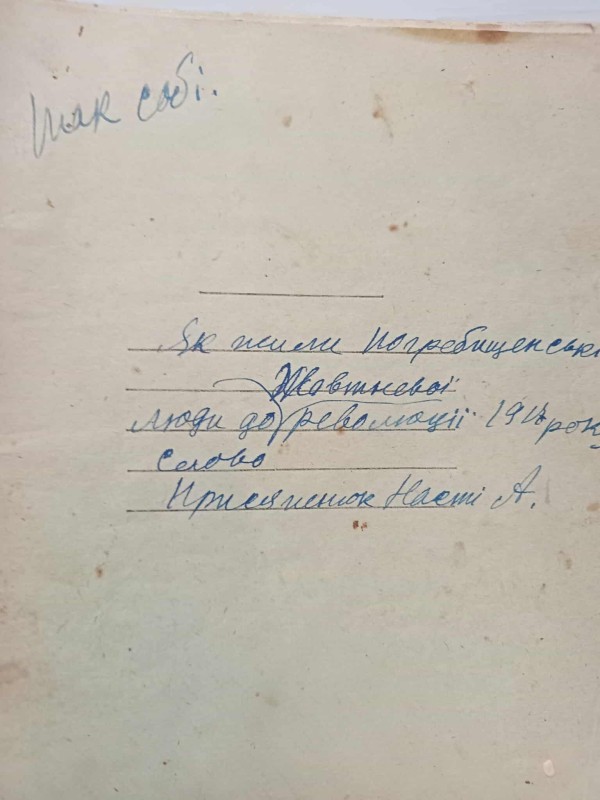 Так собі.
Як жили Погребищенські
Жовтневої
люди до революції 1917 року
Слово
Присяжнюк Насті А.